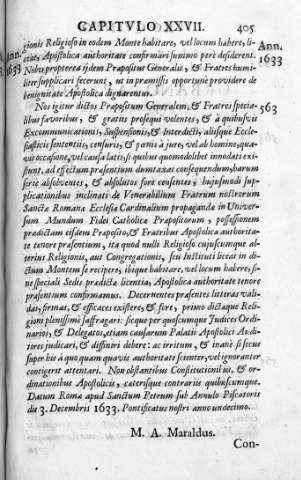 CAPITVLO XXVII. 405
gionis Religioso in eodem Monte habitare, vel locum habere, li-
ceat, Apostolica authoritate confirmari summo però desiderent.
Nobis propterea ijdem Præpositus Generalis, & Fratres humi-
liter supplicari fecerunt, ut in præmissis opportunè providere de
benignitate Apostolica dignaremur.
Nos igitur dictos Præpositum Generalem, & Fratres specia-
libus favoribus, & gratijs prosequi volentes, & à quibusvis
Excommunicationis, Suspensionis, & Interdicti, alijsque Eccle-
siasticis sententijs, censuris, & pœnis à jure, vel ab homine, qua-
vis occasione, vel causa latis, si quibus quomodolibet innodati exi-
stunt, ad effectum præsentium dumtaxat consequendum, harum
serie absolventes, & absolutos fore censentes, hujusmodi sup-
plicationibus inclinati de Venerabilium Fratrum nostrorum
Sanctæ Romanæ Ecclesiæ Cardinalium propagandæ in Univer-
sum Mundum Fidei Catholicæ Præpositorum, possessionem
prædictam eisdem Præposito, & Fratribus Apostolica authorita-
te tenore præsentium, ita quod nulli Religioso cujuscumque al-
terius Religionis, aut Congregationis, seu Instituti liceat in di-
ctum Montem se recipere, ibique habitare, vel locum habere, si-
ne speciali Sedis prædictæ licentia, Apostolica authoritate tenore
præsentium confirmamus. Decernentes præsentes litteras vali-
das, firmas, & efficaces existere, & fore, primo dictæque Reli-
gioni plenissimè suffragari: sicque per quoscumque Judices Ordi-
narios, & Delegatos, etiam causarum Palatij Apostolici Audi-
tores judicari, & diffiniri debere: ac irritum, & inane si secus
super his à quoquam quavis authoritate scienter, vel ignoranter
contigerit attentari. Non obstantibus Constitutionibus, & or-
dinationibus Apostolicis, cæterisque contrarijs quibuscumque.
Datum Romæ apud Sanctum Petrum sub Annulo Piscatoris
die 3. Decembris 1633. Pontificatus nostri anno undecimo.
M. A. Maraldus.
Con-
Ann.
1633
563